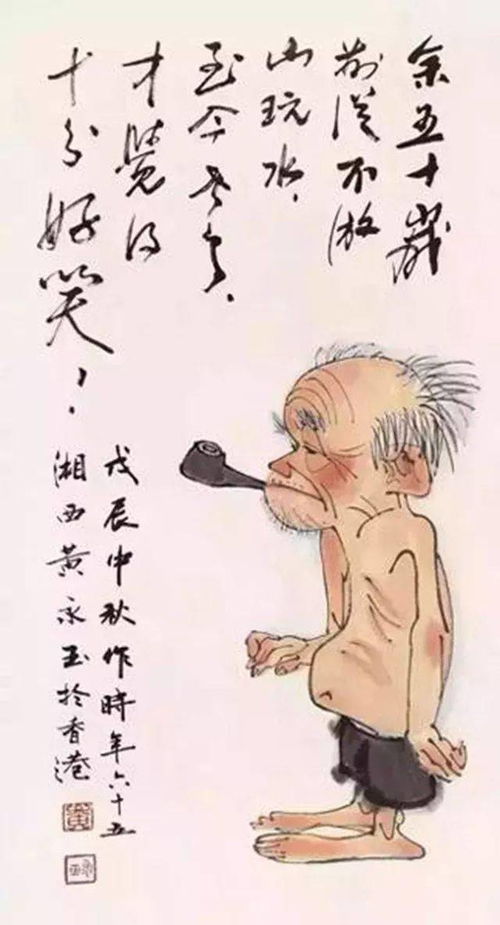 余五十歲
前從不游
山玩水、
至今老了、
才覺得
十分好笑、、
戊辰中秋作時年六十五
湘西黃永玉於香港
黃